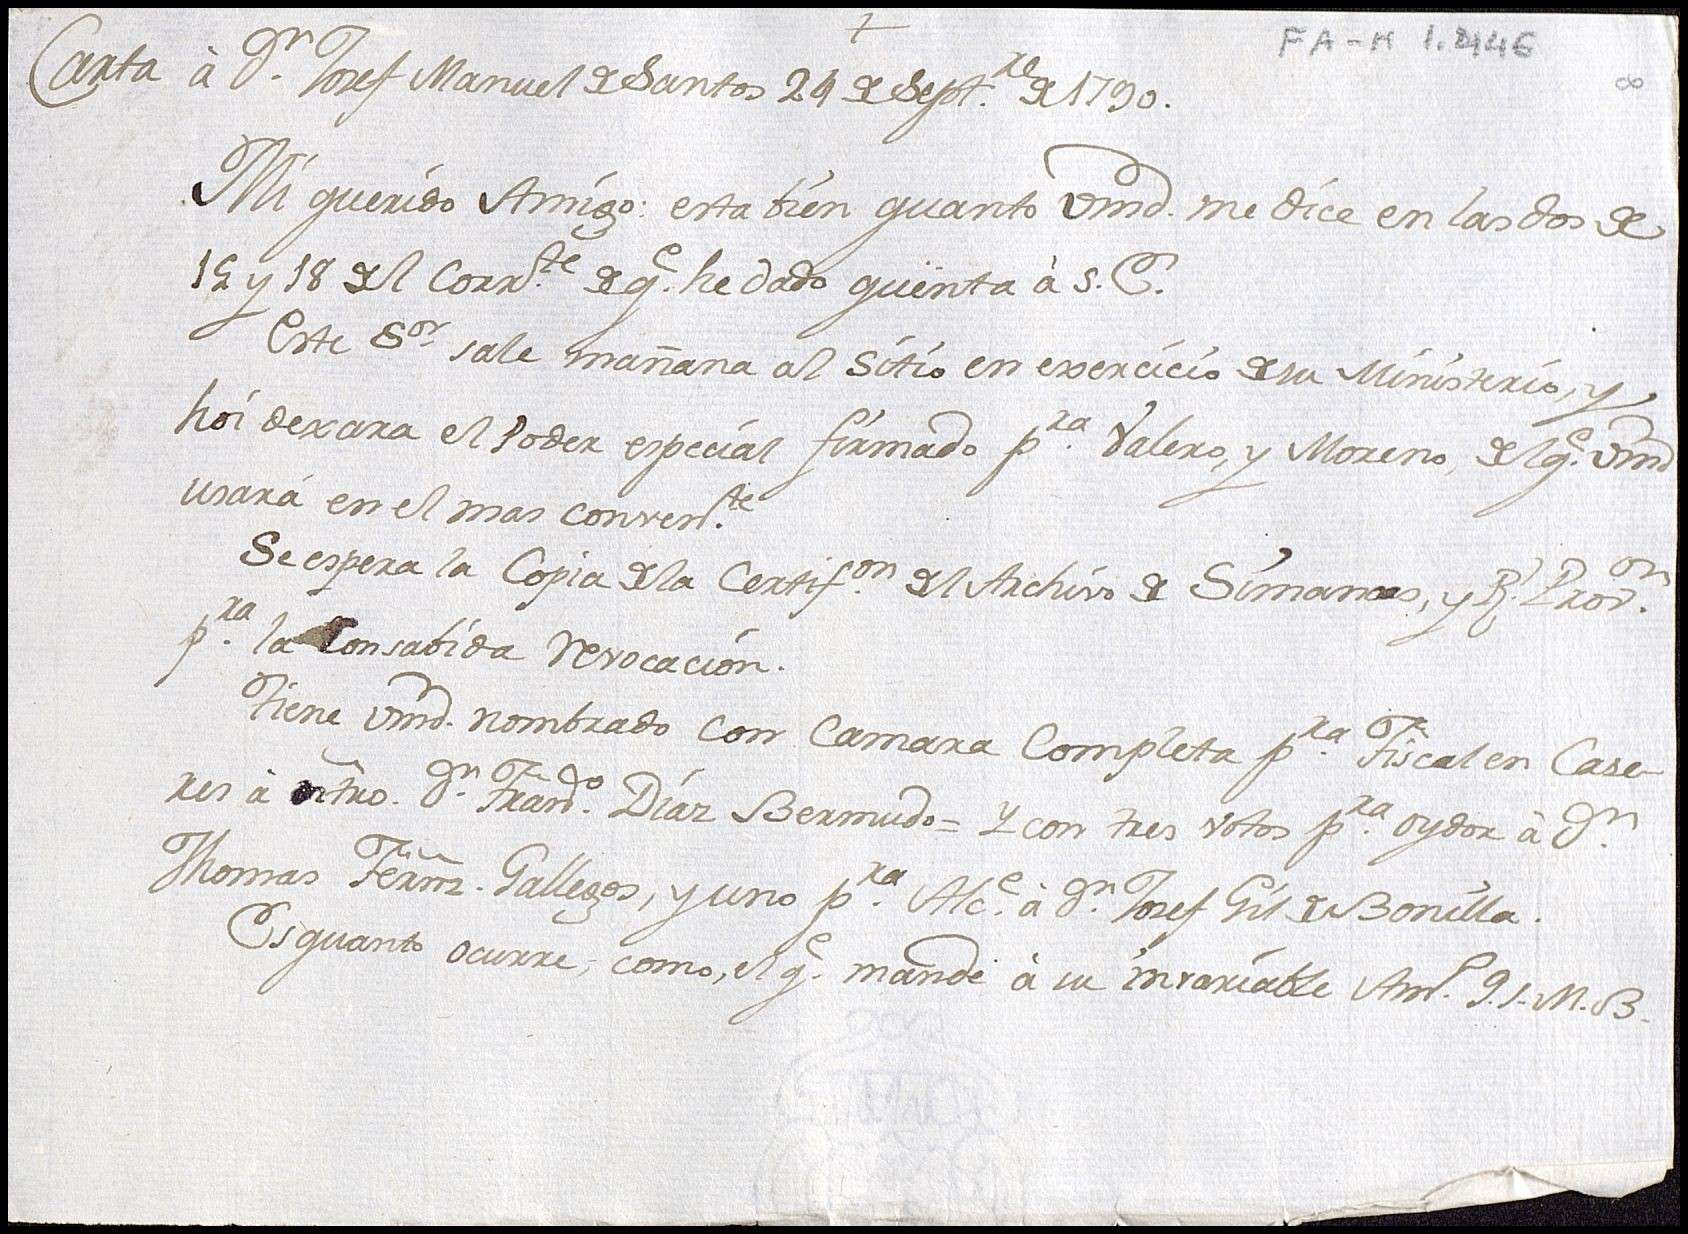 +
FA-M 1.2446
8
Carta à Dn. Josef Manuel de Santos 24 de Sept.re de 1790.
Mi querido Amigo: esta bien quanto Vmd. me dice en las dos de
15 y 18 del Corr.te de q.e he dado qüenta à S. E.
Este Sor. sale mañana al Sitio en exercicio de su Ministerio, y
hoi dexara el Poder especial firmado p.ra Valero, y Moreno, del q.e Vmd
usará en el mas conven.te
Se espera la Copia de la Certif.on del Archivo de Simancas, y Rl. Prov.on
p.ra la Consabida revocación.
Tiene Vmd. nombrado con Camara Completa p.ra Fiscal en Case-
res à ntro. Dn. Fran.do Díaz Bermudo = Y con tres votos p.ra oydor à Dn.
Thomas Fernz. Gallegos, y uno p.ra Alc.e à Dn. Josef Gil de Bonilla.
Es quanto ocurre, como, el q.e mande à su invariable Am.o Q.S.M.B.